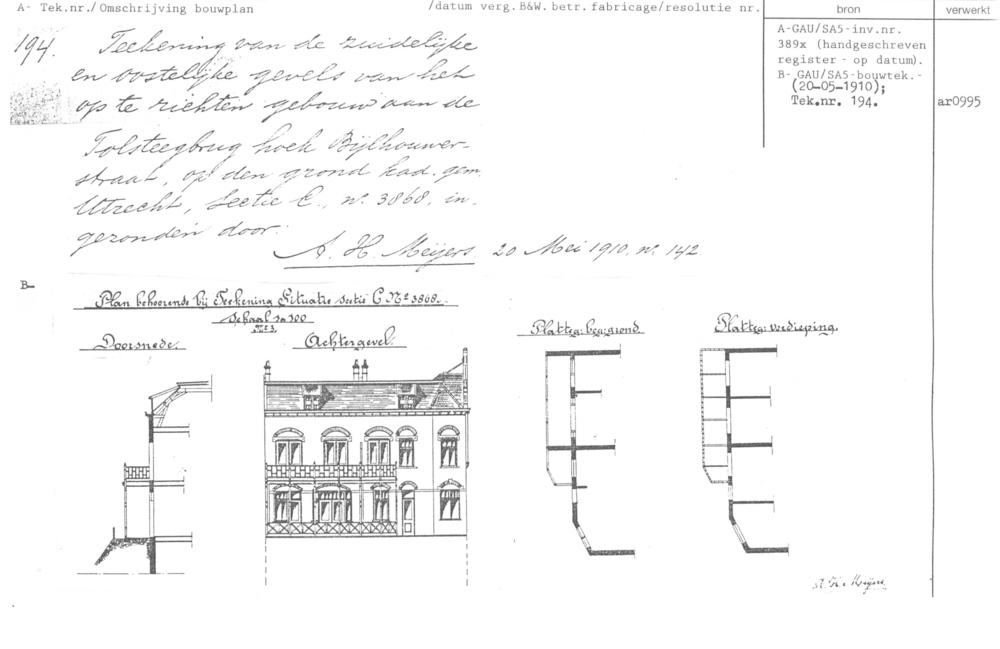 A- Tek.nr./Omschrijving bouwplan
/datum verg.B&W.betr.fabricage/resolutie nr.
bron
verwerkt
194.
Teekening van de zuidelijke
en oostelijke gevels van het
op te richten gebouw aan de
Tolsteegbrug hoek Bijlhouwer-
straat, op den grond kad. gem.
Utrecht, Sectie C., no. 3868, in-
gezonden door:
A. H. Meijers 20 Mei 1910, no. 142
A-GAU/SA5-inv.nr.
389x (handgeschreven
register - op datum).
B- GAU/SA5-bouwtek.-
(20-05-1910);
Tek.nr. 194.
ar0995
B-
Plan behoorende bij Teekening Situatie sectie C No 3868.
Schaal 1a100
No 3.
Doorsnede.
Achtergevel.
Platteg: beg: grond.
Platteg: verdieping.
A. H. Meijers